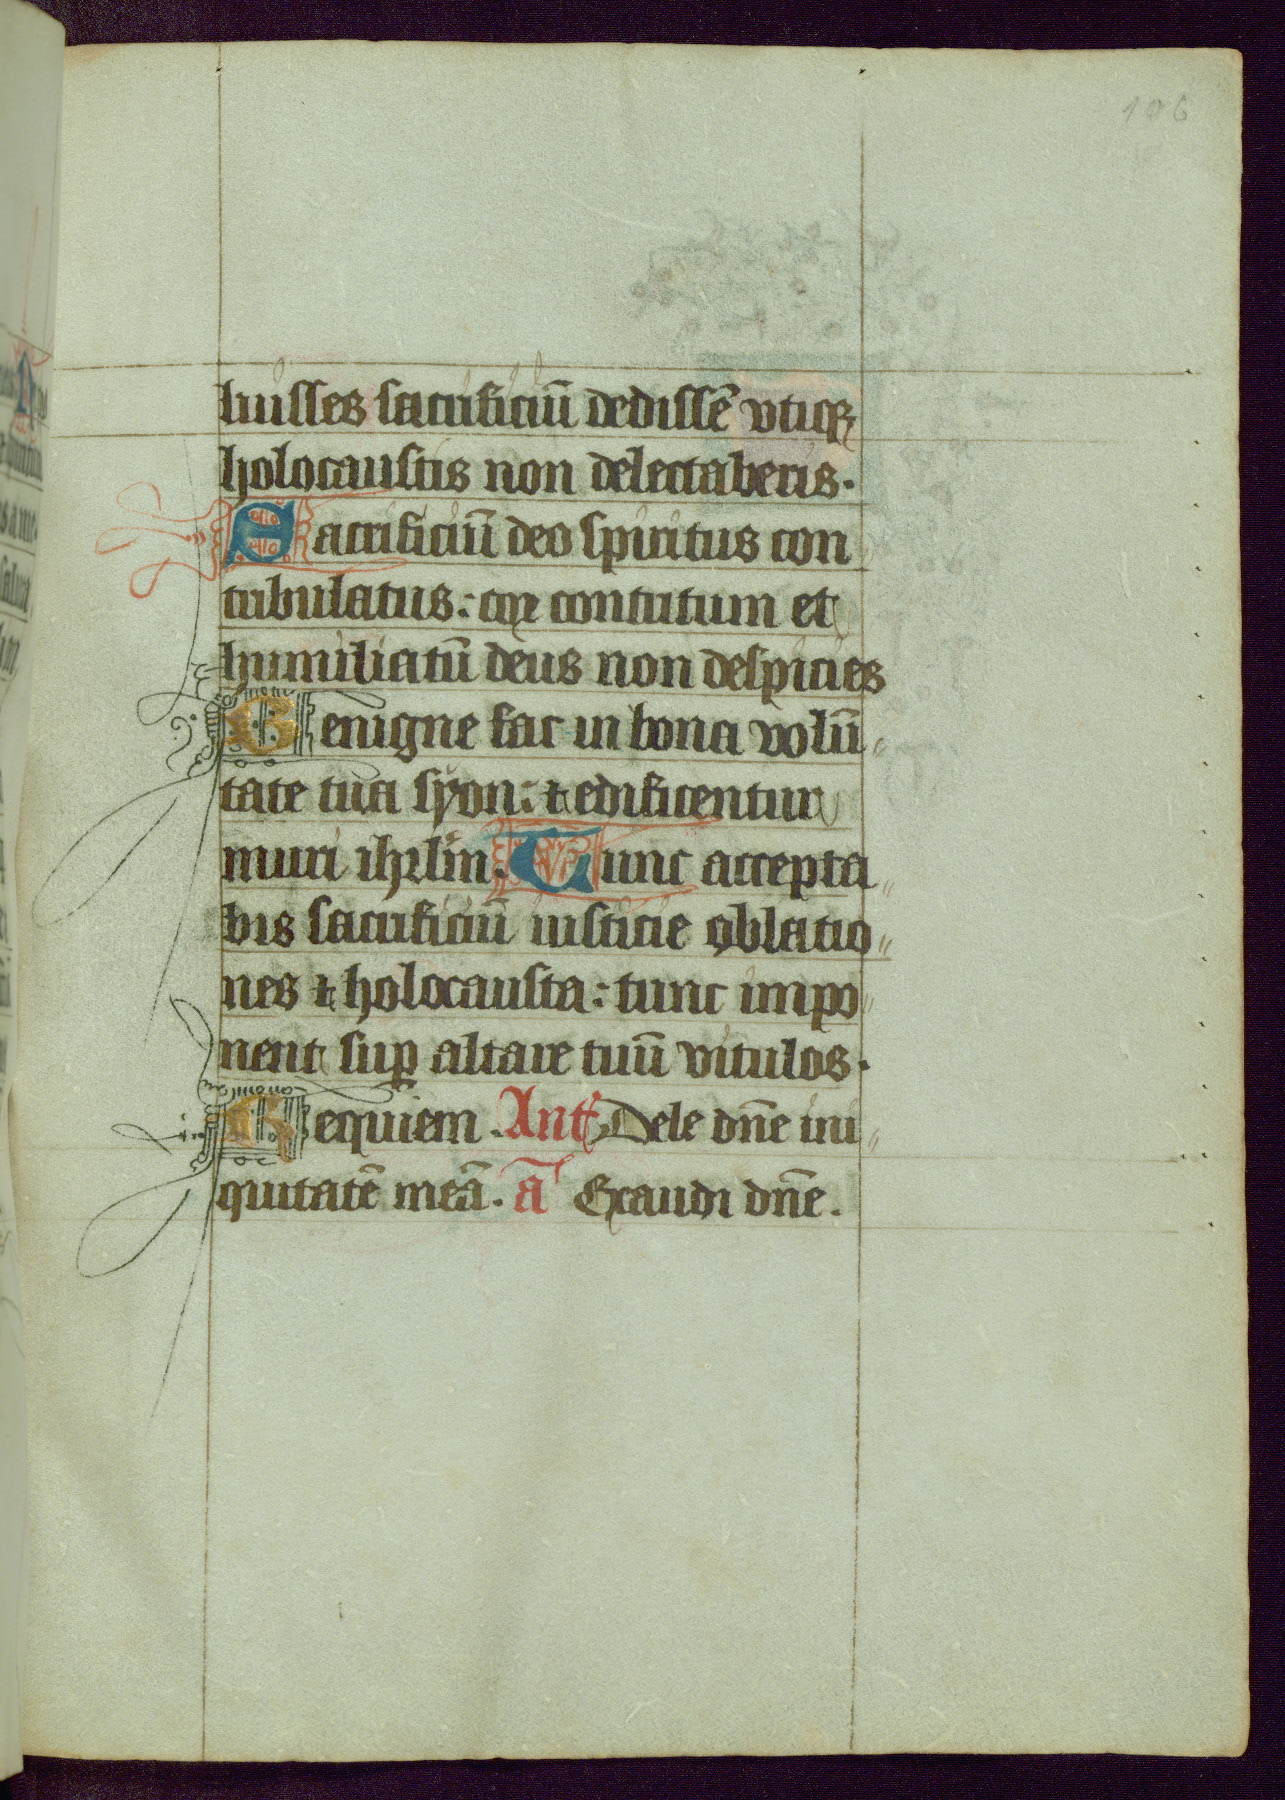 106
luisses sacrificiū dedissē vtiqꝫ
holocaustis non delectaberis.
Sacrificiū deo spiritus con
tribulatus: cor contritum et
humiliatū deus non despicies
Benigne fac in bona volū〃
tate tua syon: ⁊ edificentur
muri ihrlm̄. Tunc accepta〃
bis sacrificiū iusticie oblatio〃
nes ⁊ holocausta: tunc impo〃
nent suꝑ altare tuū vitulos.
Requiem. Ant̄ Dele dn̄e ini〃
quitatē meā. ā Exaudi dn̄e.